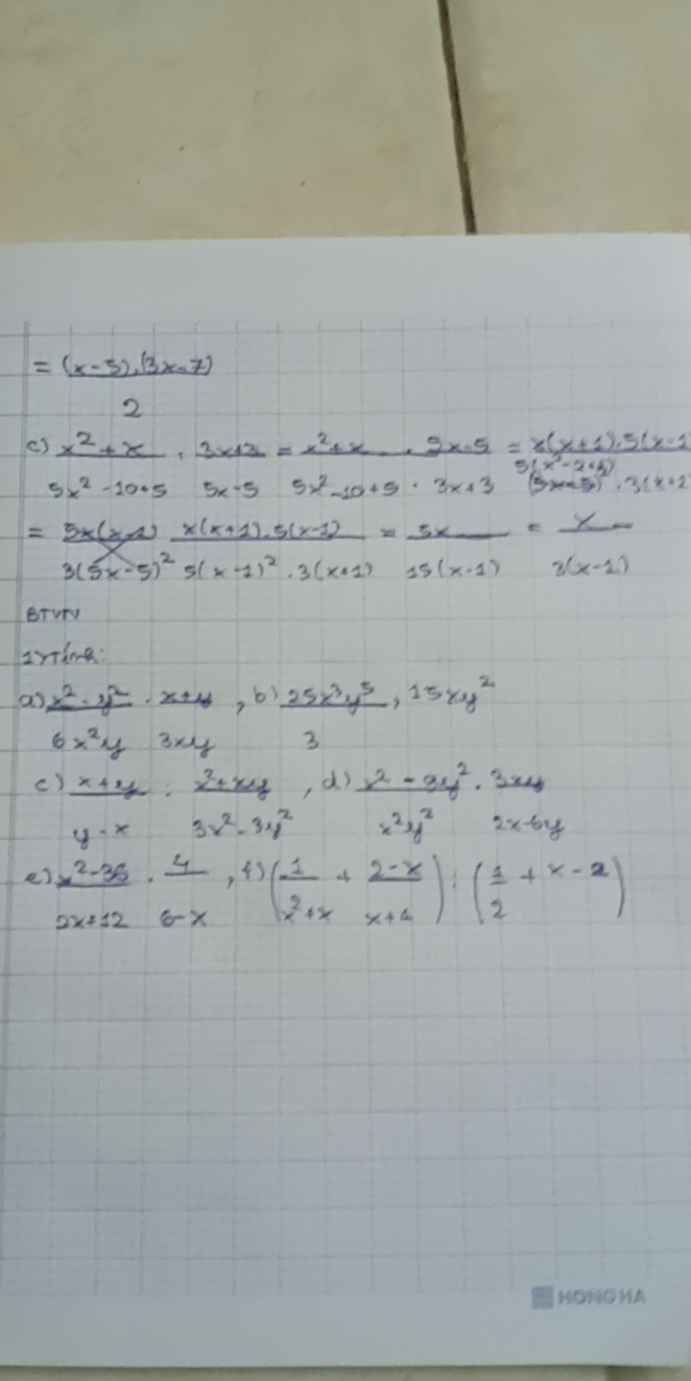 = (x-5).(3x-7) / 2
c) x²+x / 5x²-10+5 : 3x+3 / 5x-5 = x²+x / 5x²-10+5 . 5x-5 / 3x+3 = x(x+1).5(x-1 / 5(x²-2+1) .3(x+1
= x(x+1).5(x-1) / 5(x-1)².3(x+1) = 5x / 15(x-1) = x / 3(x-1)
BTVN
1) Tính:
a) x²-y² / 6x²y : x+y / 3xy , b) 25x³y⁵ / 3 , 15xy²
c) x+y / y-x : x²+xy / 3x²-3y² , d) x²-9y² / x²y² . 3xy / 2x-6y
e) x²-36 / 2x+12 . 4 / 6-x , f) (1 / x²+x + 2-x / x+1) : (1 / 2 + x-2)
HONG HA